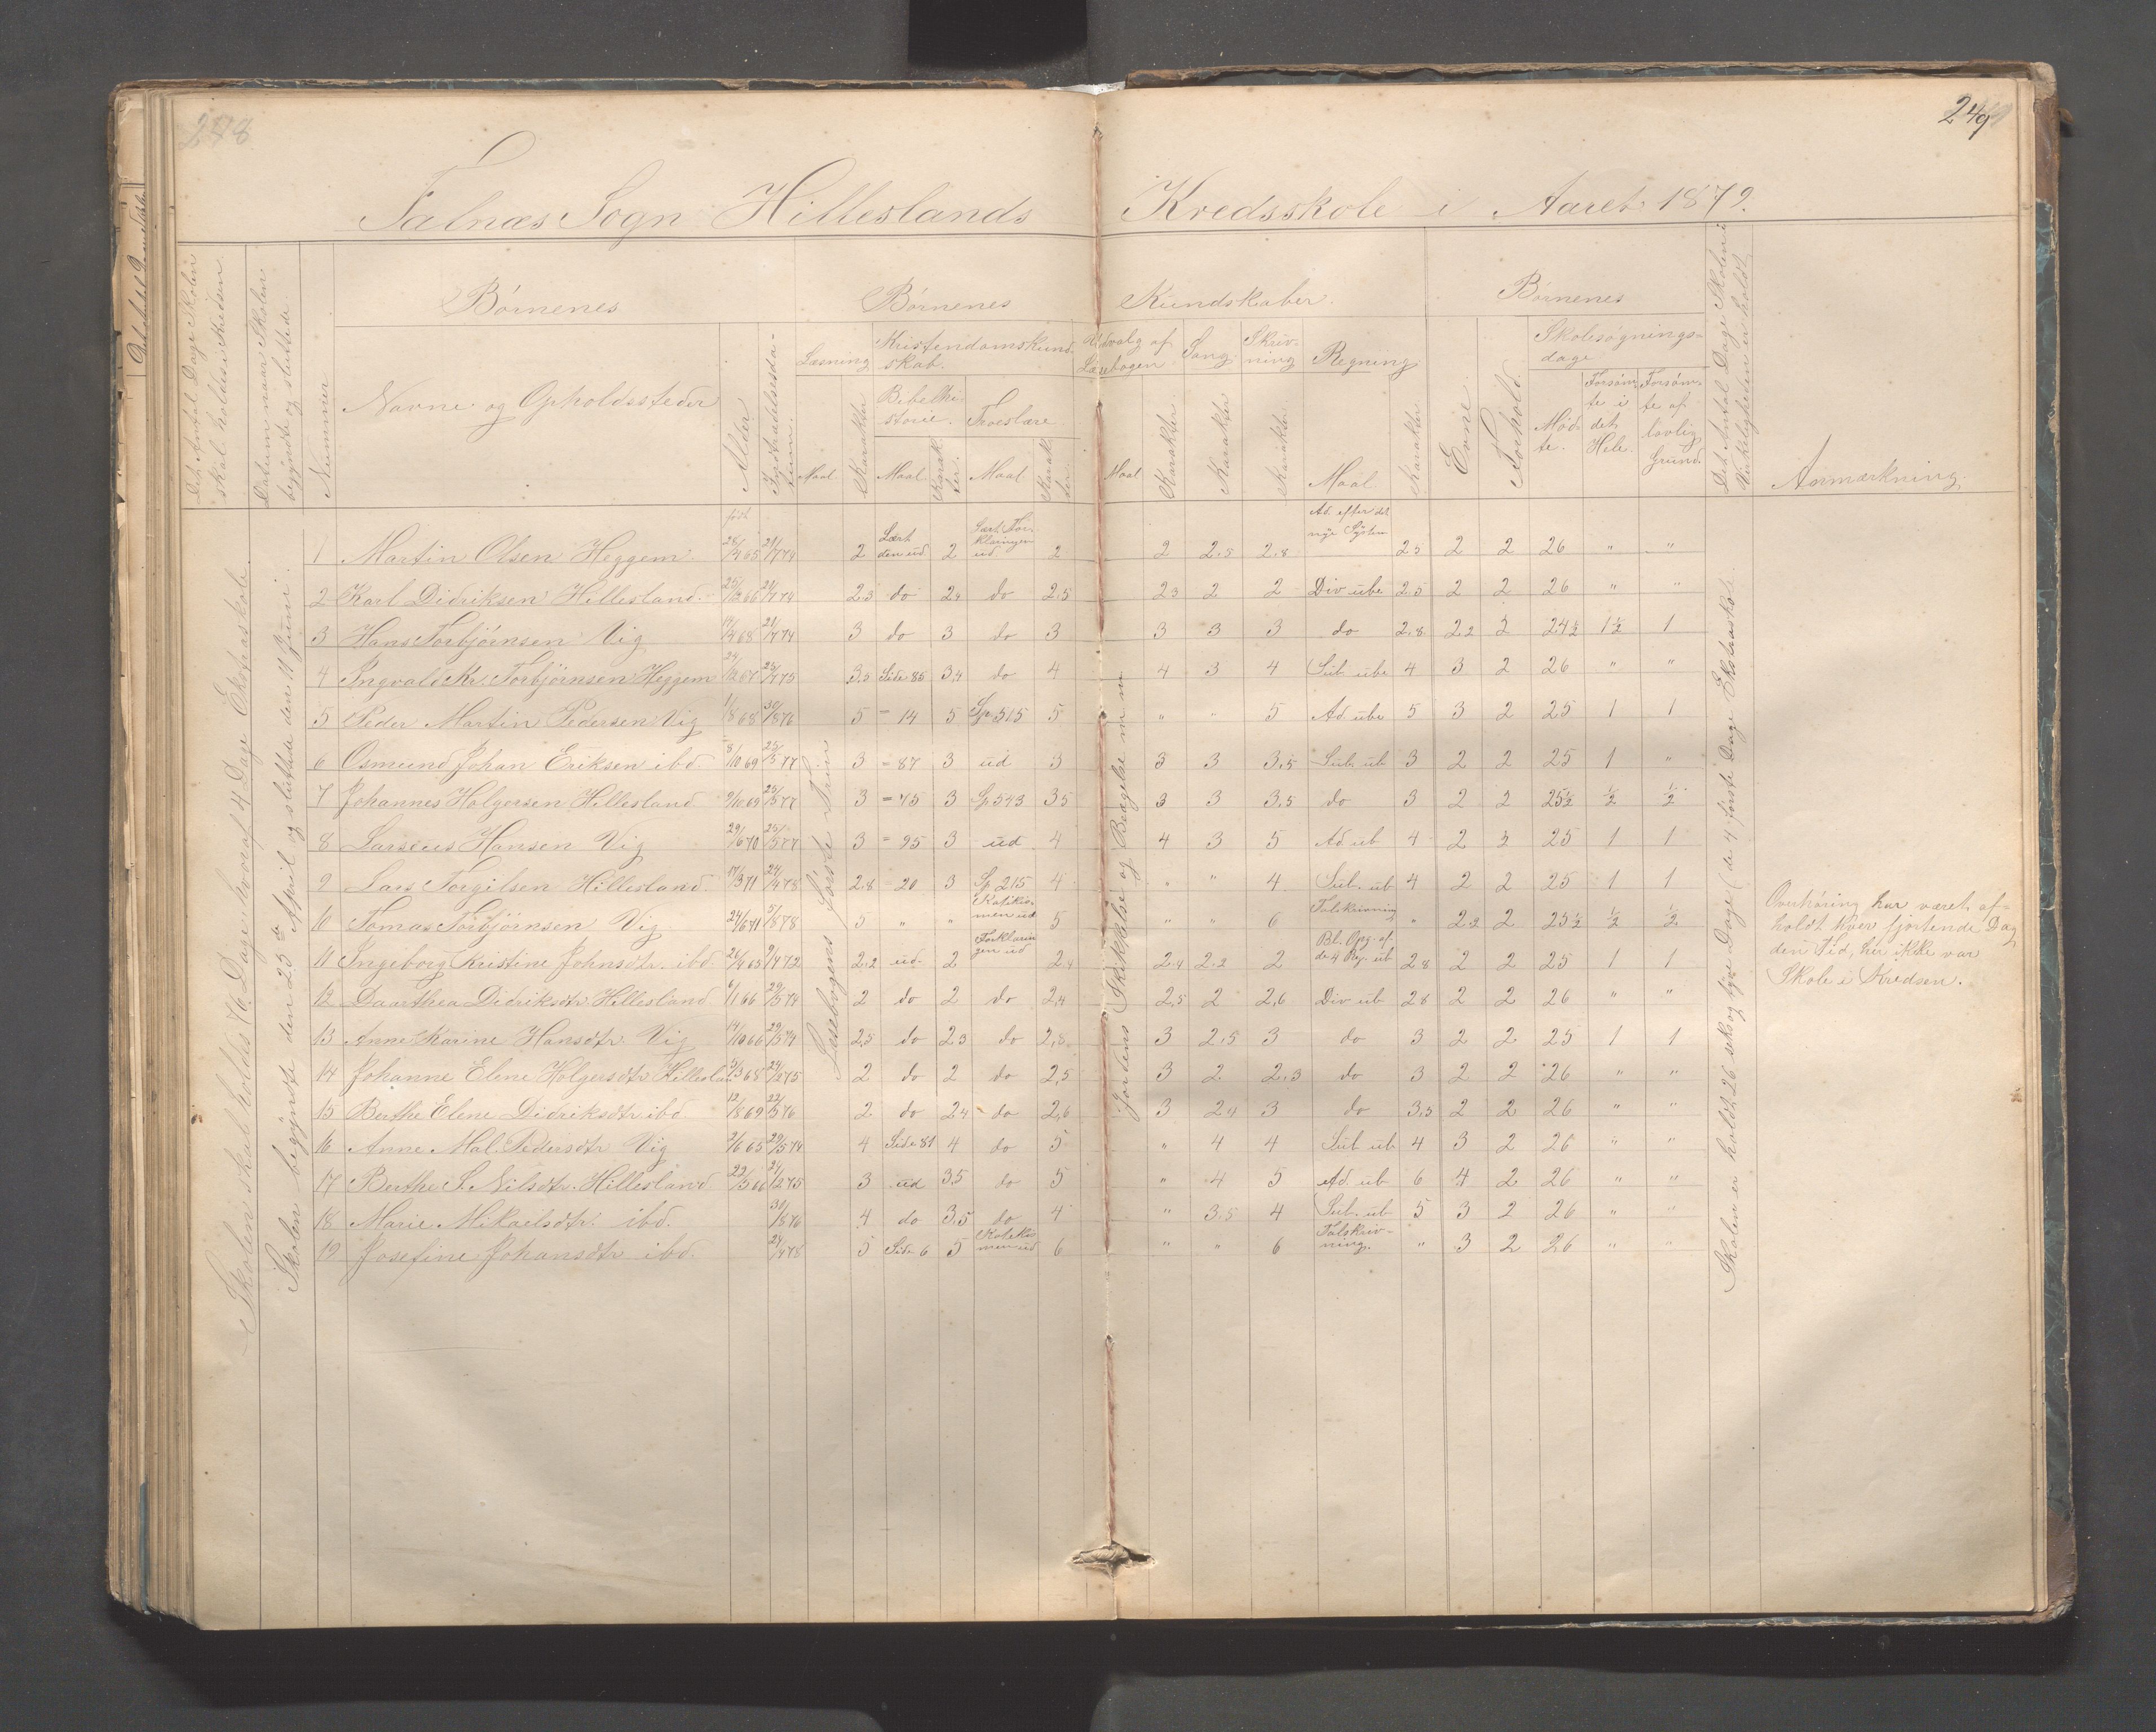 248
249
Falnæs Sogn Hilleslands Kredsskole i Aaret 1879.
Det Antal Dage Skolen skal holdes i Kredsen.
Datum naar Skolen begyndte og sluttede
Nummer
Børnenes
Børnenes Kundskaber.
Børnenes
Navne og Opholdssteder
Alder
Indtrædelsesdatum.
Læsning
Kristendomskundskab.
Udvalg af Læsebogen
Sang
Skrivning
Regning
Evne
Forhold.
Skolesøgningsdage
Bibelhistorie.
Troeslære.
Maal
Karakter
Maal
Karakter.
Maal
Karakter
Maal
Karakter.
Karakter
Karakter
Maal
Karakter
Mødte.
Forsømte i det Hele.
Forsømte af lovlig Grund.
Det Antal Dage Skolen i Virkeligheden er holdt
Anmærkning.
Skolen skal holdes 76 Dage hvoraf 4 Dage Ekstraskole.
Skolen begyndte den 23de April og sluttede den 11 Juni.
Læsebogens første Trin
Jordens Skikkelse og Bevægelse m. m
Skolen er holdt 26 seks og tyve Dage (de 4 første Dage Ekstraskole.
født
1 Martin Olsen Heggem 28/4 65 21/7 74 2 Lært den ud 2 Lært Forklaringen ud 2 2 2.5 2.8 Ad. efter det nye System 2.5 2 2 26 " "
2 Karl Didriksen Hillesland 25/12 66 21/7 74 2.3 do 2.4 do 2.5 2.3 2 2 Div ube 2.5 2 2 26 " "
3 Hans Torbjørnsen Vig 17/4 68 21/7 74 3 do 3 do 3 3 3 3 do 2.8 2.2 2 24½ 1½ 1
4 Ingvald Kr. Torbjørnsen Heggem 24/12 67 24/7 75 3.5 Side 85 3.4 do 4 4 3 4 Sub. ube 4 3 2 26 " "
5 Peder Martin Pedersen Vig 1/8 68 30/8 76 5 = 14 5 Sp 515 5 " " 5 Ad. ube 5 3 2 25 1 1
6 Osmund Johan Eriksen ibd 8/10 69 25/5 77 3 = 87 3 ud 3 3 3 3.5 Sub. ub 3 2 2 25 1 "
7 Johannes Holgersen Hillesland 9/10 69 25/5 77 3 = 75 3 Sp 543 3.5 3 3 3.5 do 3 2 2 25½ ½ ½
8 Larseus Hansen Vig 29/6 70 25/5 77 3 = 95 3 ud 4 4 3 5 Ad. ub 4 2 2 25 1 1
9 Lars Torgilsen Hillesland 17/3 71 24/4 78 2.8 = 20 3 Sp 215 4 " " 4 Sub. ub 4 2 2 25 1 1
10 Tomas Torbjørnsen Vig 24/6 71 5/8 78 5 " " Katekismen ud 5 " " 6 Talskrivning " 2.2 2 25½ ½ ½
11 Ingeborg Kristine Johnsdtr. ibd. 26/4 65 9/4 72 2.2 ud. 2 Forklaringen ud 2.4 2.4 2.2 2 Bl. Opg. af de 4 Reg. ub 2.8 2 2 25 1 1
12 Daarthea Didriksdtr. Hillesland 6/1 66 29/5 74 2 do 2 do 2,4 2,5 2 2,6 Div ub 2.8 2 2 26 " "
13 Anne Karine Hansdtr. Vig 14/10 66 29/5 74 2,5 do 2.3 do 2,8 3 2,5 3 do 3 2 2 25 1 1
14 Johanne Elene Holgersdtr Hillesland 5/3 68 24/2 75 2 do 2 do 2,5 3 2. 2.3 do 3 2 2 26 " "
15 Berthe Elene Didriksdtr ibd. 12/8 69 22/5 76 2. do 2.4 do 2,6 3 2.4 3 do 3.5 2 2 26 " "
16 Anne Mal. Pedersdtr Vig 2/6 65 29/5 74 4 Side 81 4 do 5 " 4 4 Sub ub 4 3 2 26 " "
17 Berthe S. Nilsdtr. Hillesland 22/5 66 24/2 75 3 ud 3.5 do 5 " 4 5 Ad. ub 6 4 2 26 " "
18 Marie Mikaelsdtr. ibd. 30/8 76 4 do 3.5 do 4 " 3.5 4 Sub. ub 5 3 2 26 " "
19 Josefine Johansdtr ibd. 24/4 78 5 Side 6 5 Katekismen ud 6 " " 6 Talskrivning. " 3 2 26 " "
Overhøring har været af-
holdt hver fjortende Dag
den Tid, her ikke var
Skole i Kredsen.